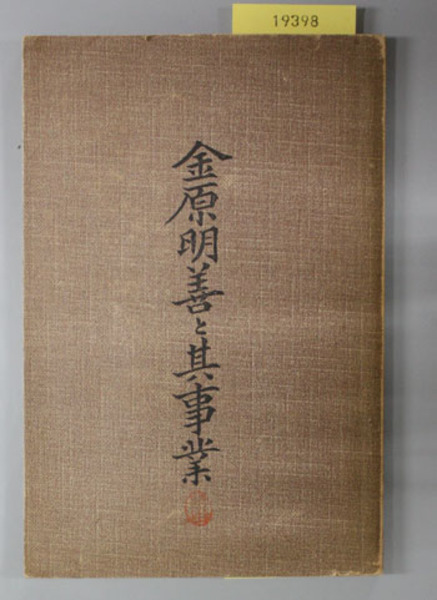 19398
金原明善と其事業